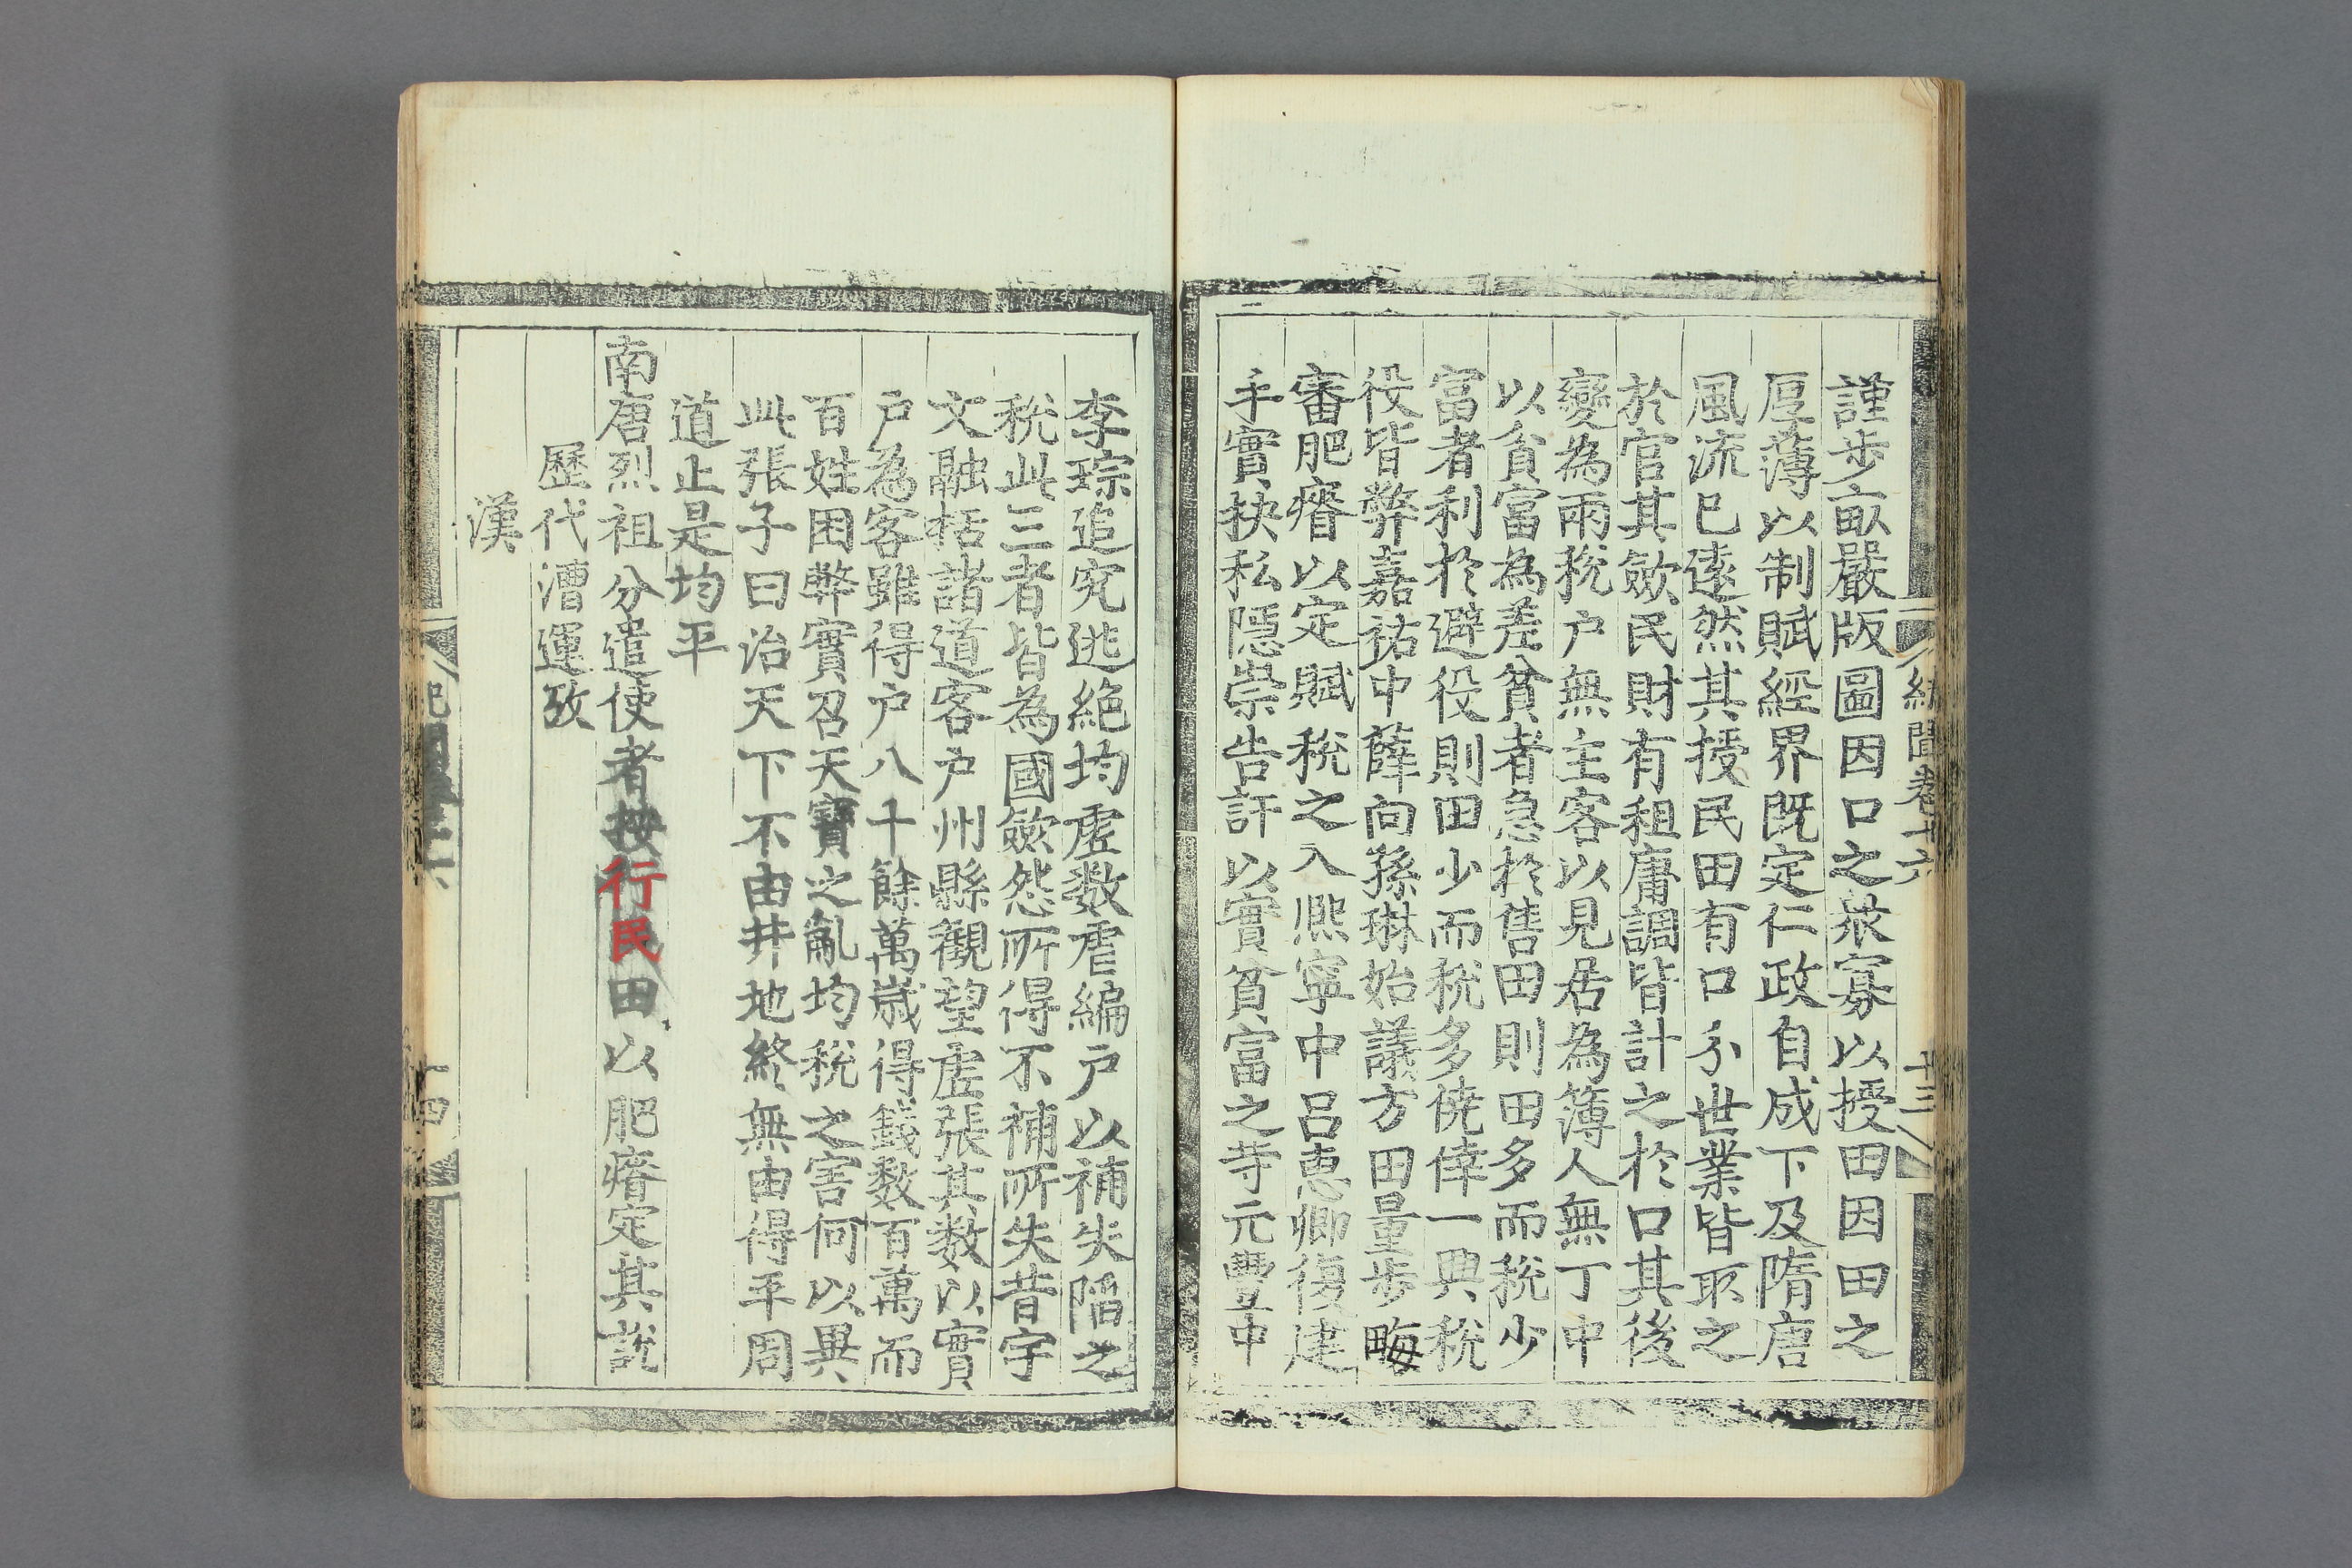 紀聞卷十六 十三
謹步畝嚴版圖因口之衆寡以授田因田之
厚薄以制賦經界既定仁政自成下及隋唐
風流已逺然其授民田有口分世業皆取之
於官其斂民財有租庸調皆計之於口其後
變為兩稅户無主客以見居為簿人無丁中
以貧富為差貧者急於售田則田多而稅少
富者利於避役則田少而稅多僥倖一興稅
役皆弊嘉祐中薛向孫琳始議方田量步畮
審肥瘠以定賦稅之入熙寧中吕惠卿復建
手實抉私隱崇告訐以實貧富之等元豐中
李琮追究逃絶均虛数虐編户以補失陷之
稅此三者皆為國斂怨所得不補所失昔宇
文融括諸道客户州縣觀望虛張其数以實
户為客雖得户八十餘萬歳得錢数百萬而
百姓困弊實召天寶之亂均稅之害何以異
此張子曰治天下不由井地終無由得平周
道止是均平
南唐烈祖分遣使者按行民田以肥瘠定其說
歷代漕運攷
漢
十四